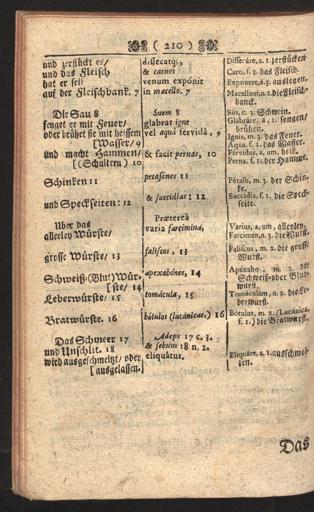 ( 210 )
und zerstückt es/
und das Fleisch
hat er feil
auf der Fleischbank. 7
Die Sau 8
senget er mit Feuer/
oder brühet sie mit heissem
[Wasser/ 9
und macht Hammen/
[(Schultern) 10
Schinken 11
und Speckseiten: 12
Uber das
allerley Würste/
grosse Würste/ 13
Schweiß-(Blut) Wür-
[ste/ 14
Leberwürste/ 15
Bratwürste. 16
Das Schmeer 17
und Unschlit. 18
wird ausgeschmeltzt/ oder
[ausgelassen.
dissecatq;,
& carnes
venum expónit
in macello. 7
Suem 8
glabrat igne
vel aquâ fervidâ, 9
& facit pernas, 10
petasónes 11
& succidias: 12
Præterea
varia farcimina,
faliscos, 13
apexabónes, 14
tomácula, 15
bótulos (lucánicas.) 16
Adeps 17 c. 3.
& sebum 18 n. 2.
eliquátur.
Dissecáre, a. 1. zerstücken
Caro, f. 3. das Fleisch.
Exponere, a. 3. auslegen.
Macellum, n. 2. die Fleisch-
banck.
Sus, c. 3. Schwein.
Glabráre, a. 1. sengen/
brühen.
Ignis, m. 3. das Feuer.
Aqua, f. 1. das Wasser.
Férvidus, a, um, heiß.
Perna, f. 1. der Hamme.
Pétaso, m. 3. der Schin-
ke.
Succidia, f. 1. die Speck-
seite.
Varius, a, um, allerley.
Farcimen, n. 3. die Wurst.
Faliscus, m. 2. die grosse
Wurst.
Apéxabo, m. 3. die
Schweiß-oder Blut-
wurst.
Tomáculum, n. 2. die Le-
berwurst.
Bótulus, m. 2. (Lucánica,
f. 1.) die Bratwurst.
Eliquáre, a. 1. ausschmel-
zen.
Das